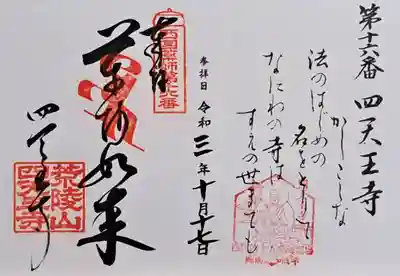 第十六番 四天王寺
かしこしな
法のはじめの
名をとめて
なにわの寺は
すえの世までも
参拝日 令和三年十月十七日
西国薬師第十六番
奉拝
薬師如来
四天王寺
荒陵山
四天王寺